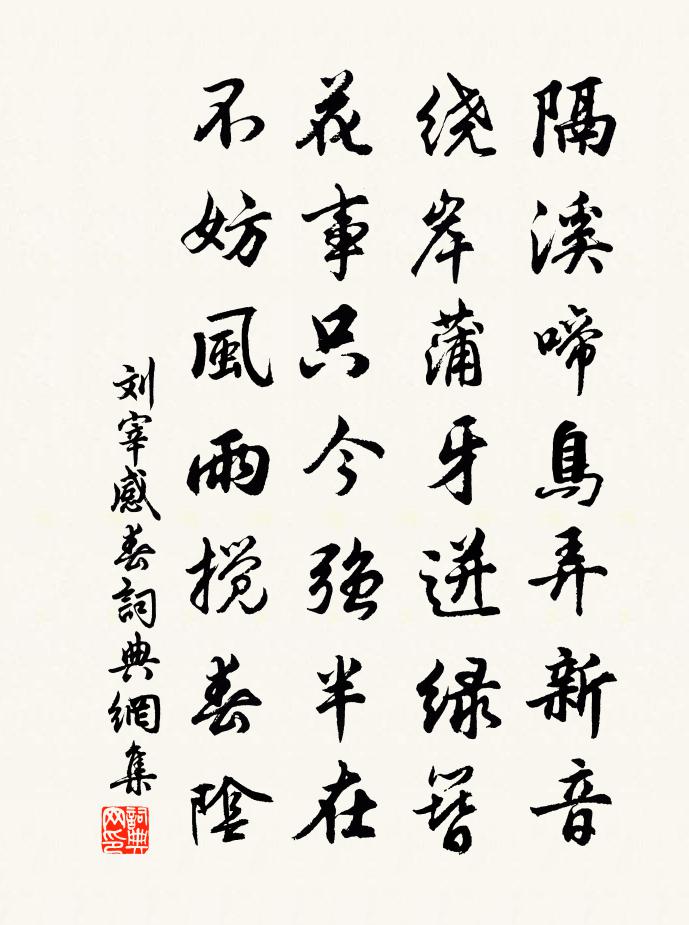 隔溪啼鳥弄新音
绕岸蒲牙迸緑簪
花事只今強半在
不妨風雨搅春陰
刘宰感春詞典網集
詞典网印